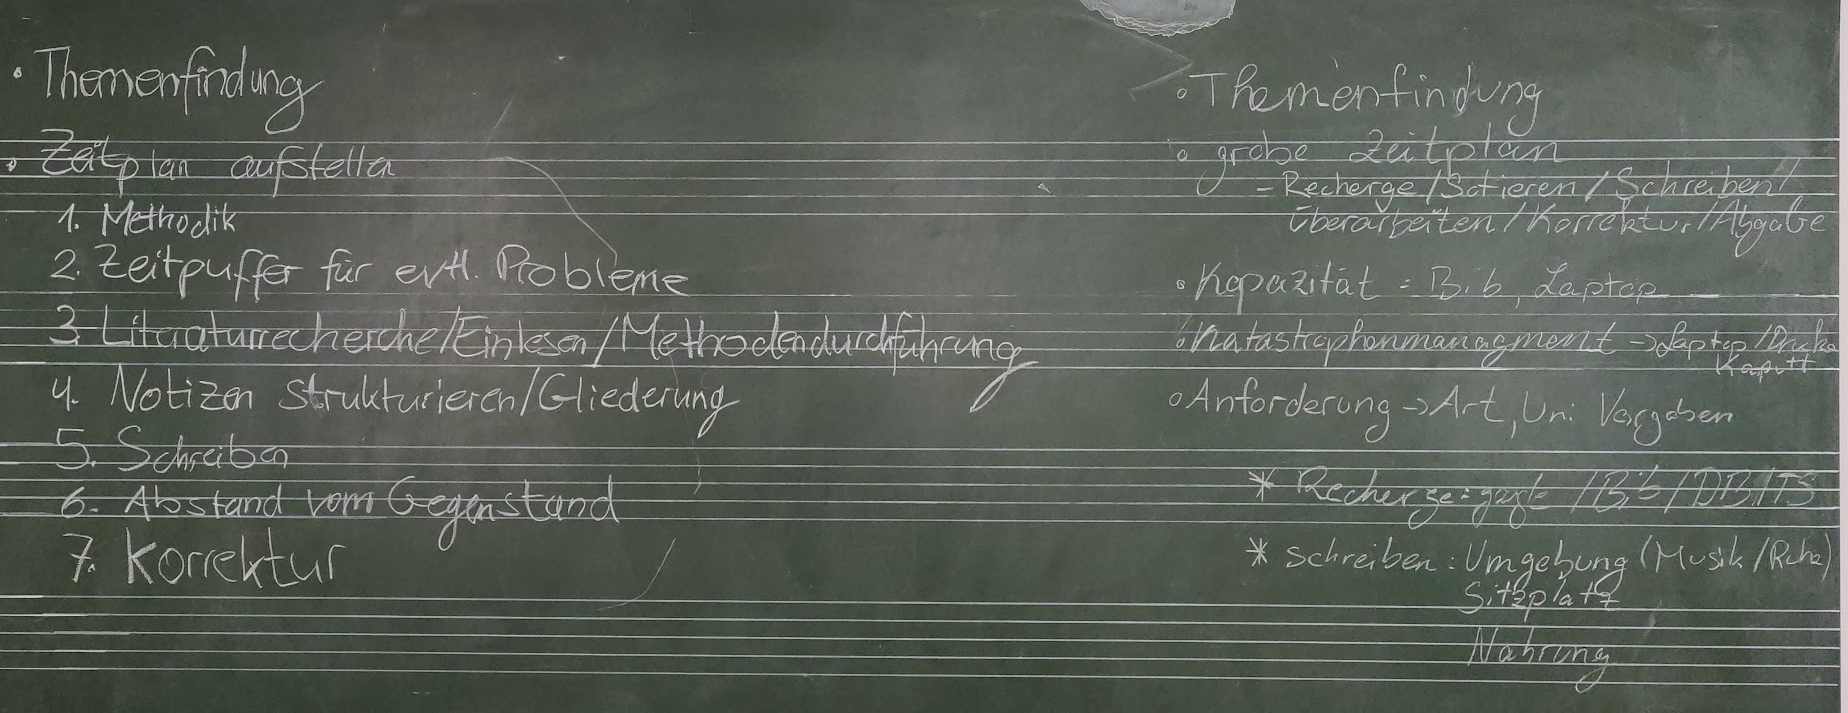 • Themenfindung
• Zeitplan aufstellen
1. Methodik
2. Zeitpuffer für evtl. Probleme
3. Literaturrecherche/Einlesen/Methodendurchführung
4. Notizen strukturieren/Gliederung
5. Schreiben
6. Abstand vom Gegenstand
7. Korrektur
• Themenfindung
• grobe Zeitplan
- Recherge/Sotieren/Schreiben/
Überarbeiten/Korrektur/Abgabe
• Kapazität: Bib, Laptop
• Katastrophenmanagment → Laptop/Drucker
Kaputt
• Anforderung → Art, Uni Vorgaben
* Recherge: /Bib/DBIS
* schreiben: Umgebung (Musik/Ruhe)
Sitzplatz
Nahrung